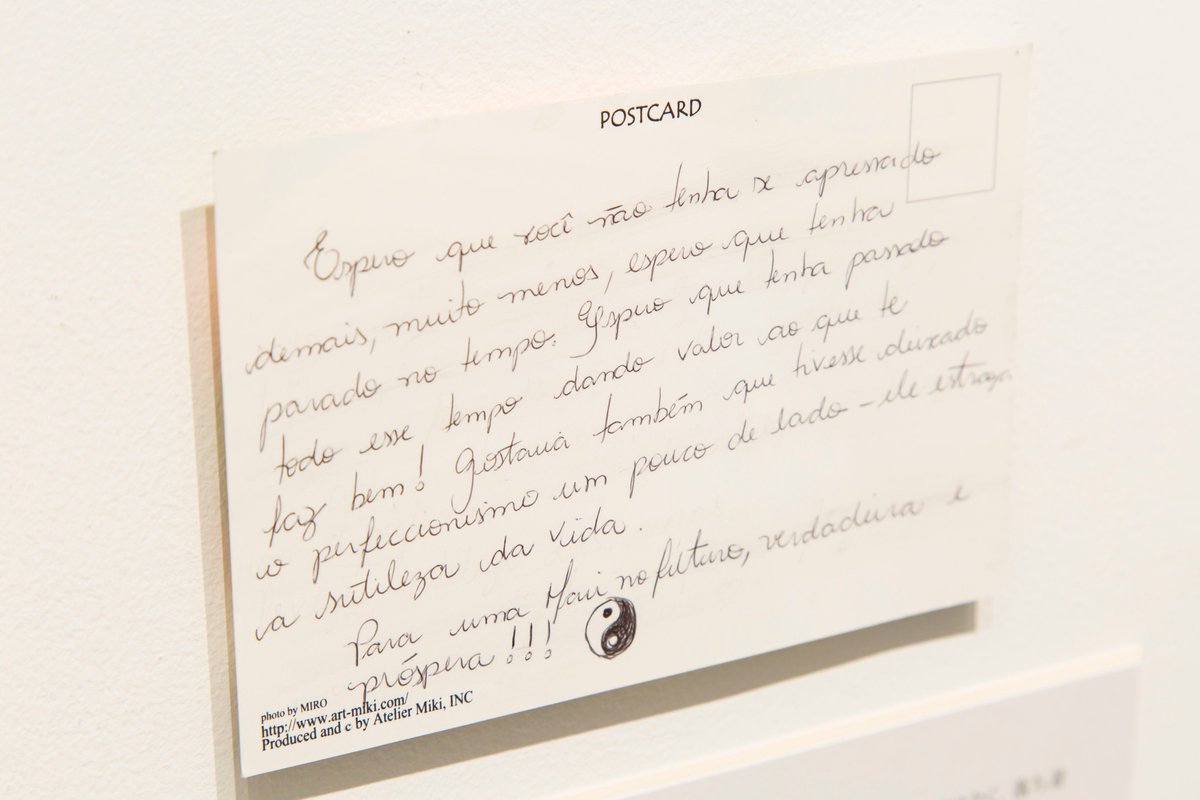 POSTCARD
Espero que você não tenha se apressado
demais, muito menos, espero que tenha
parado no tempo. Espero que tenha passado
todo esse tempo dando valor ao que te
faz bem! Gostaria também que tivesse deixado
o perfeccionismo um pouco de lado - ele estraga
a sutileza da vida.
Para uma Mari no futuro, verdadeira e
próspera!!!
photo by MIRO
http://www.art-miki.com/
Produced and c by Atelier Miki, INC